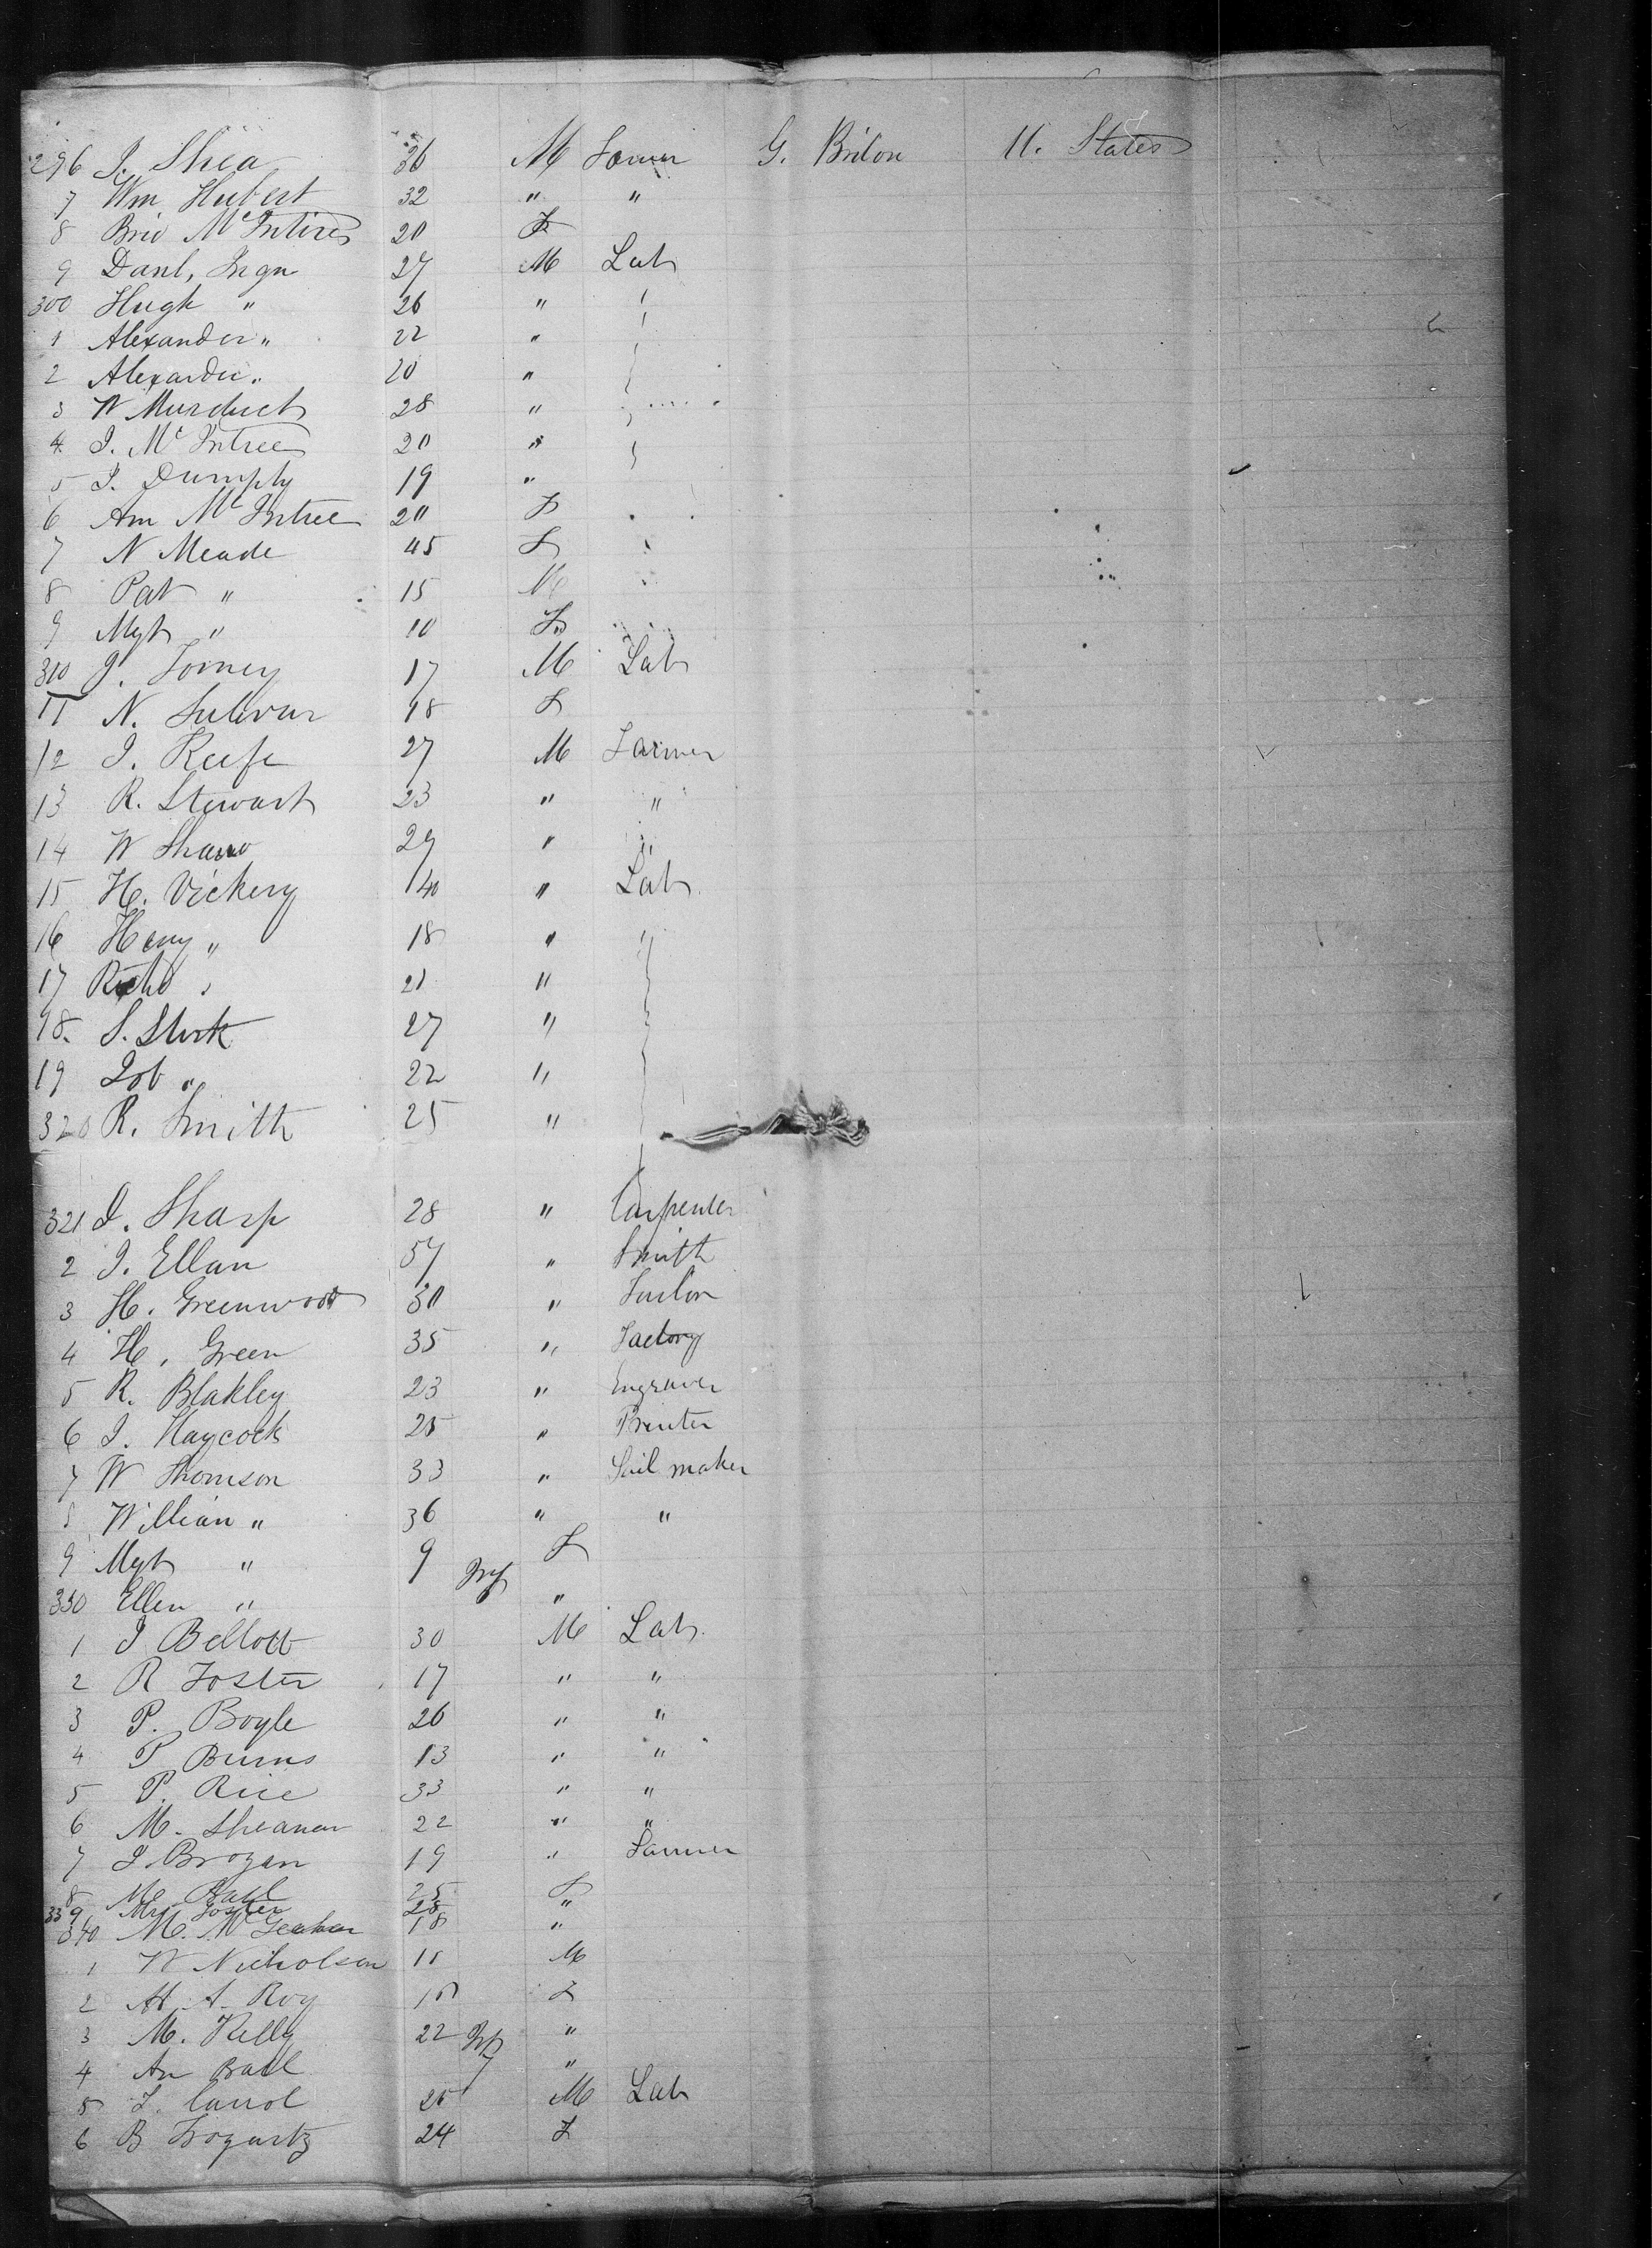 296 J. Shea 36 M Farmer G. Briton U. States
7 Wm Hubert 32 " "
8 Brid McIntire 20 F
9 Danl, 27 M Lab
300 Hugh " 26 "
1 Alexander " 22 "
2 Alexander " 20 "
3 W Murduch 28 "
4 J. McIntree 20 "
5 J. Dumphy 19 "
6 Ann McIntree 20 F
7 N Meade 45 F
8 Pat " 15 M
9 Mgt " 10 F
310 J. Torney 17 M Lab
11 N. Sulivan 18 F
12 J. Keefe 27 M Farmer
13 R. Stewart 23 " "
14 W Shaw 29 " "
15 H. Vickery 40 " Lab
16 Heny " 18 " "
17 Richd " 21 "
18. S. Stirk 27 "
19 Job " 22 "
320 R. Smith 25 "
321 J. Sharp 28 " Carpenter
2 J. Ellan 57 " Smith
3 H. Greenwood 30 "
4 H. Green 35 " Factory
5 R. Blakley 23 " Engraver
6 J. Haycock 25 " Printer
7 W Thomson 33 " Sail maker
8 William " 36 " "
9 Mgt " 9 F
330 Ellen " Inf "
1 J Bellott 30 M Lab.
2 R Foster 17 " "
3 P. Boyle 26 " "
4 P Burns 13 " "
5 P. Rice 33 " "
6 M. Sheanan 22 " "
7 J. Brogan 19 " Farmer
8 M. Ball 25 F
339 Mrs Foster 28 "
340 M. 18 "
1 W Nicholson 11 M
2 M. A. Roy F
3 M. Kelly 22 "
4 An Ball Inf "
5 J. Carrol 25 M Lab
6 B Fogarty 24 F